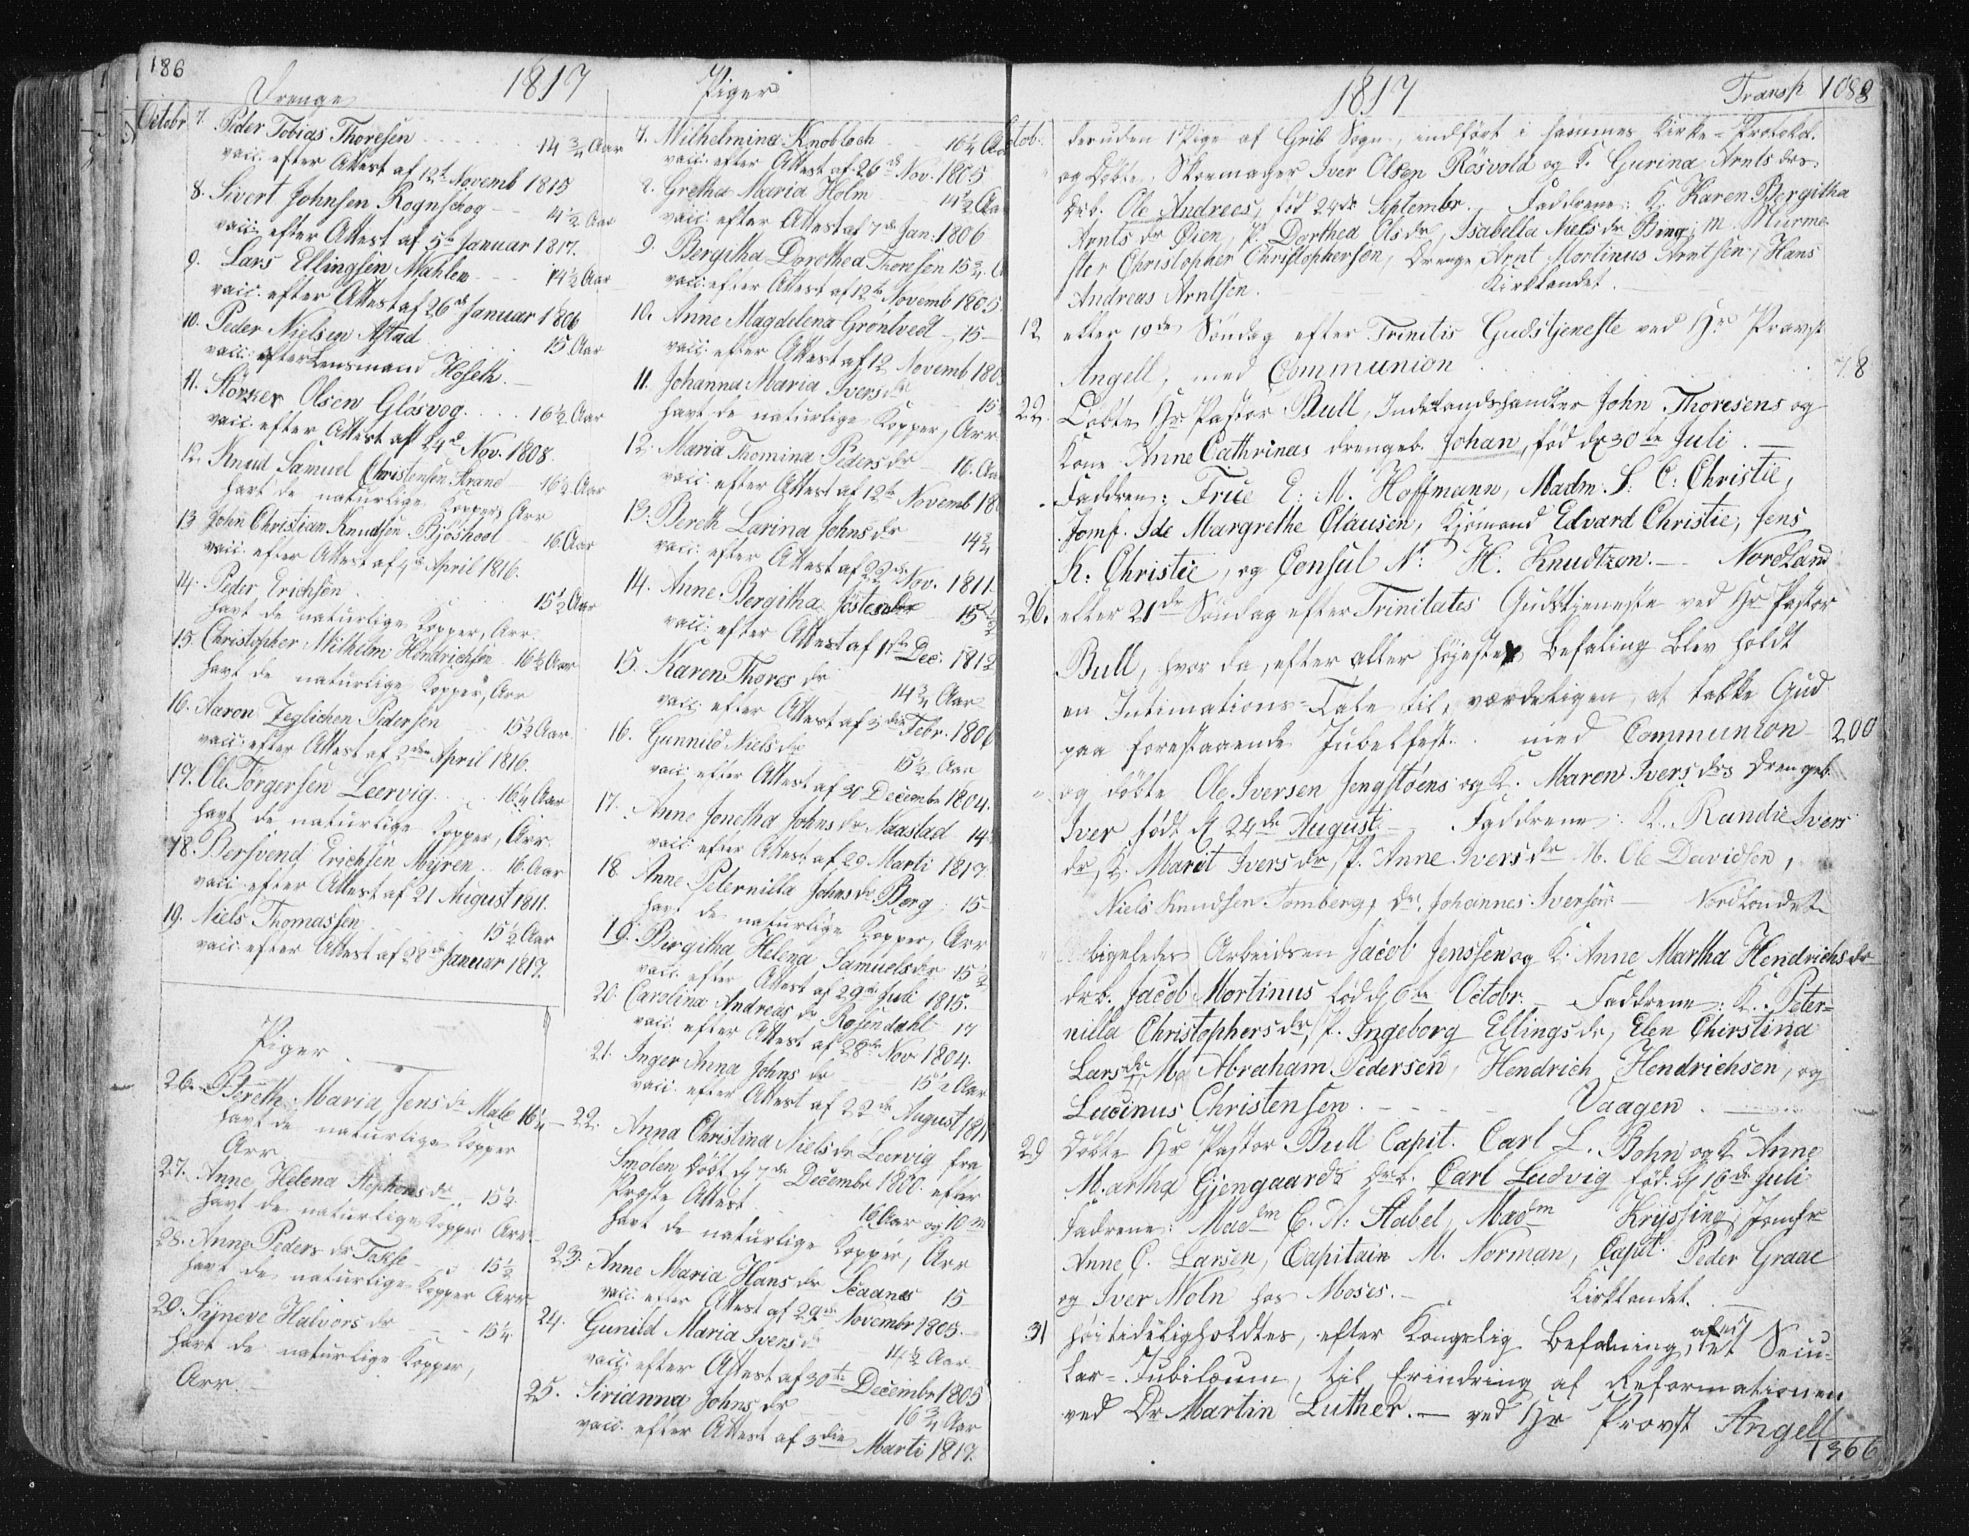 186
1817
Drenge
Octobr 7. Peder Tobias Thoresen 14 3/4 Aar
vacc: efter Attest af 12te Novemb 1815
8. Sivert Johnsen Rognskog 14 1/2 Aar
vacc: efter Attest af 5te Januar 1817.
9. Lars Ellingsen Mæhlen 14 1/2 Aar
vacc. efter Attest af 26de Januar 1806
10. Peder Nielsen 15 Aar
vacc: efter Lensmand Hoseth.
11. Størker Olsen Gløsvog 16 1/2 Aar
vacc: efter Attest af 24de Nov. 1808.
12. Knud Samuel Christensen Strand 16 1/2 Aar
havt de naturlige Kopper, Arr
13 John Christian Knudsen 16 Aar
vacc. efter Attest af April 1816.
14. Peder Erichsen 15 1/2 Aar
havt de naturlige Kopper, Arr.
15. Christopher Wilhelm Hendrichsen 16 1/2 Aar
havt de naturlige Kopper, Arr
16. Aaron Zeglichen Pedersen 15 1/2 Aar
vacc: efter Attest af 2den April 1816.
17. Ole Torgersen Leervig 16 1/4 Aar
havt de naturlige Kopper, Arr.
18. Bersvend Erichsen Myren 16 Aar
vacc: efter Attest af 21 August 1811.
19. Niels Thomassen 15 1/2 Aar
vacc. efter Attest af 28de Januar 1817.
Piger
26. Bereth Maria Jens dr Male 16 1/4
havt de naturlige Kopper
Arr
27. Anne Helena Stephens dr 15 1/2
havt de naturlige Kopper Arr
28. Anne Peders dr 15 1/2
havt de naturlige Kopper Arr
29. Siyneve Halvors dr 15 1/4
havt de naturlige Kopper,
Arr.
Piger
7. Wilhelmina Knobloch 16 1/4 Aar
vacc: efter Attest af 26de Nov. 1805
8. Gretha Maria Holm 14 1/2 Aar
vacc: efter Attest af 7de Jan: 1806
9. Bergitha Dorothea Thoresen 15 3/4
vacc: efter Attest af 12te Novemb 1805
10. Anne Magdelena Grøntvedt 15
vacc: efter Attest af 12 Novemb
11. Johanna Maria Ivers dr 15
havt de naturlige Kopper, Arr
12. Maria Thomina Peders dr 16. Aar
vacc: efter Attest af 12te Novemb
13. Bereth Larina Johns dr 14 3/4
vacc: efter Attest af 22de Nov. 1811.
14. Anne Bergitha 15
vacc: efter Attest af 1ste Dec. 1812
15. Karen Thores dr 14 3/4 Aar
vacc. efter Attest af 3die Febr. 1806
16. Gunnild Niels dr 15 1/2 Aar
vacc. efter Attest af 30 Decembr 1804.
17. Anne Jonetha Johns dr Naastad 14
vacc efter Attest af 20. Marti 1817
18. Anne Peternilla Johns dr Berg 15
havt de naturlige Kopper, Arr
19. Birgitha Helena Samuels dr 15 1/2
vacc. efter Attest af 29de Juli 1815.
20. Carolina Andreas dr Rosendahl 17
vacc: efter Attest af 28de Nov 1804.
21. Inger Anna Johns dr 15 1/2 Aar
vacc. efter Attest af 22de August
22. Anna Christina Niels dr Leervig fra
Smølen, døbt d 7de Decembr 1800. efter
Præste Attest 16 Aar og 10 m
havt de naturlige Kopper, Arr
23. Anne Maria Hans dr 15
vacc. efter Attest af 29de Novembr 1805.
24. Gunild Maria Ivers dr 14 1/2 Aar
vacc: efter Attest af 30te Decembr 1805
25. Sirianna Johns dr 16 3/4 Aar
vacc. efter Attest af 3die Marti 1817.
1817
Transp 1088
deruden 1 Pige af Grib Sogn, indført i sammes Kirke-Protokol.
og døbte Skoemager Iver Olsen Røsvold og K. Gurina Arnts drs
drb. Ole Andreas, fød 24de Septembr. Faddrene: K. Karen Bergitha
Arnts dr Øien, P. Dorthea Ols dr, Isabella Niels dr Bing, M. Murme-
ster Christopher Christophersen, Drenge Arnt Mortinus Arntsen, Hans
Andreas Arntsen. Kirklandet.
12 eller 19de Søndag efter Trinitis Gudstjeneste ved Hr Provst
Angell, med Communion 78
22. Døbte Hr Pastor Bull, Indelandshandler John Thoresens og
Kone Anne Cathrinas drengeb. Johan, fød d 30te Juli.
Faddren: Frue E: M. Hoffmann, Madm. S. C: Christie,
Jomf. Ide Margrethe Clausen, Kjømand Edvard Christie, Jens
K: Christie, og Consul N: H. Knudtzon. Nordland
26. eller 21de Søndag efter Trinitates Gudstieneste ved Hr Pastor
Bull, hvor da, efter aller højeste Befaling blev holdt
en Intimations-Tale til, værdeligen at takke Gud
paa forestaaende Jubelfest. med Communion 200
og døbte Ole Iversen Jengstøens og K. Maren Ivers drs drengeb.
Iver født d 24de Augusti Faddrene: K. Randie Ivers
dr, K. Marit Ivers dr, P. Anne Ivers dr M. Ole Davidsen,
Niels Knudsen Tomberg, Dr. Johannes Iversen Nordlandet
ligeledes Arbeidsm Jacob Jenssen og K. Anne Martha Hendrichs dr
drb. Jacob Mortinus fød d 6te Octobr. Faddrene: K. Peter-
nilla Christophers dr, P. Ingeborg Ellings dr, Elen Chirstina
Lars dr, M. Abraham Pedersen, Hendrich Hendrichsen, og
Lucinus Christensen. Vaagen.
29 Døbte Hr Pastor Bull Capit. Carl L. Bohn og K Anne
Martha Gjengaards drb. Carl Ludvig fød d 16de Juli
Fadrene: Madm C. A: Stabel, Madm Kryssing, Jomfr
Anne C. Larsen, Capitain M. Norman, Capit. Peder Graae
og Iver Moln hos Moses. Kirklandet.
31 høitideligholdtes, efter Kongelig Befalning, det Secu-
lar-Jubilæum, til Erindring af Reformationen
ved Dr Martin Luther. ved Hr Provst Angell
1366